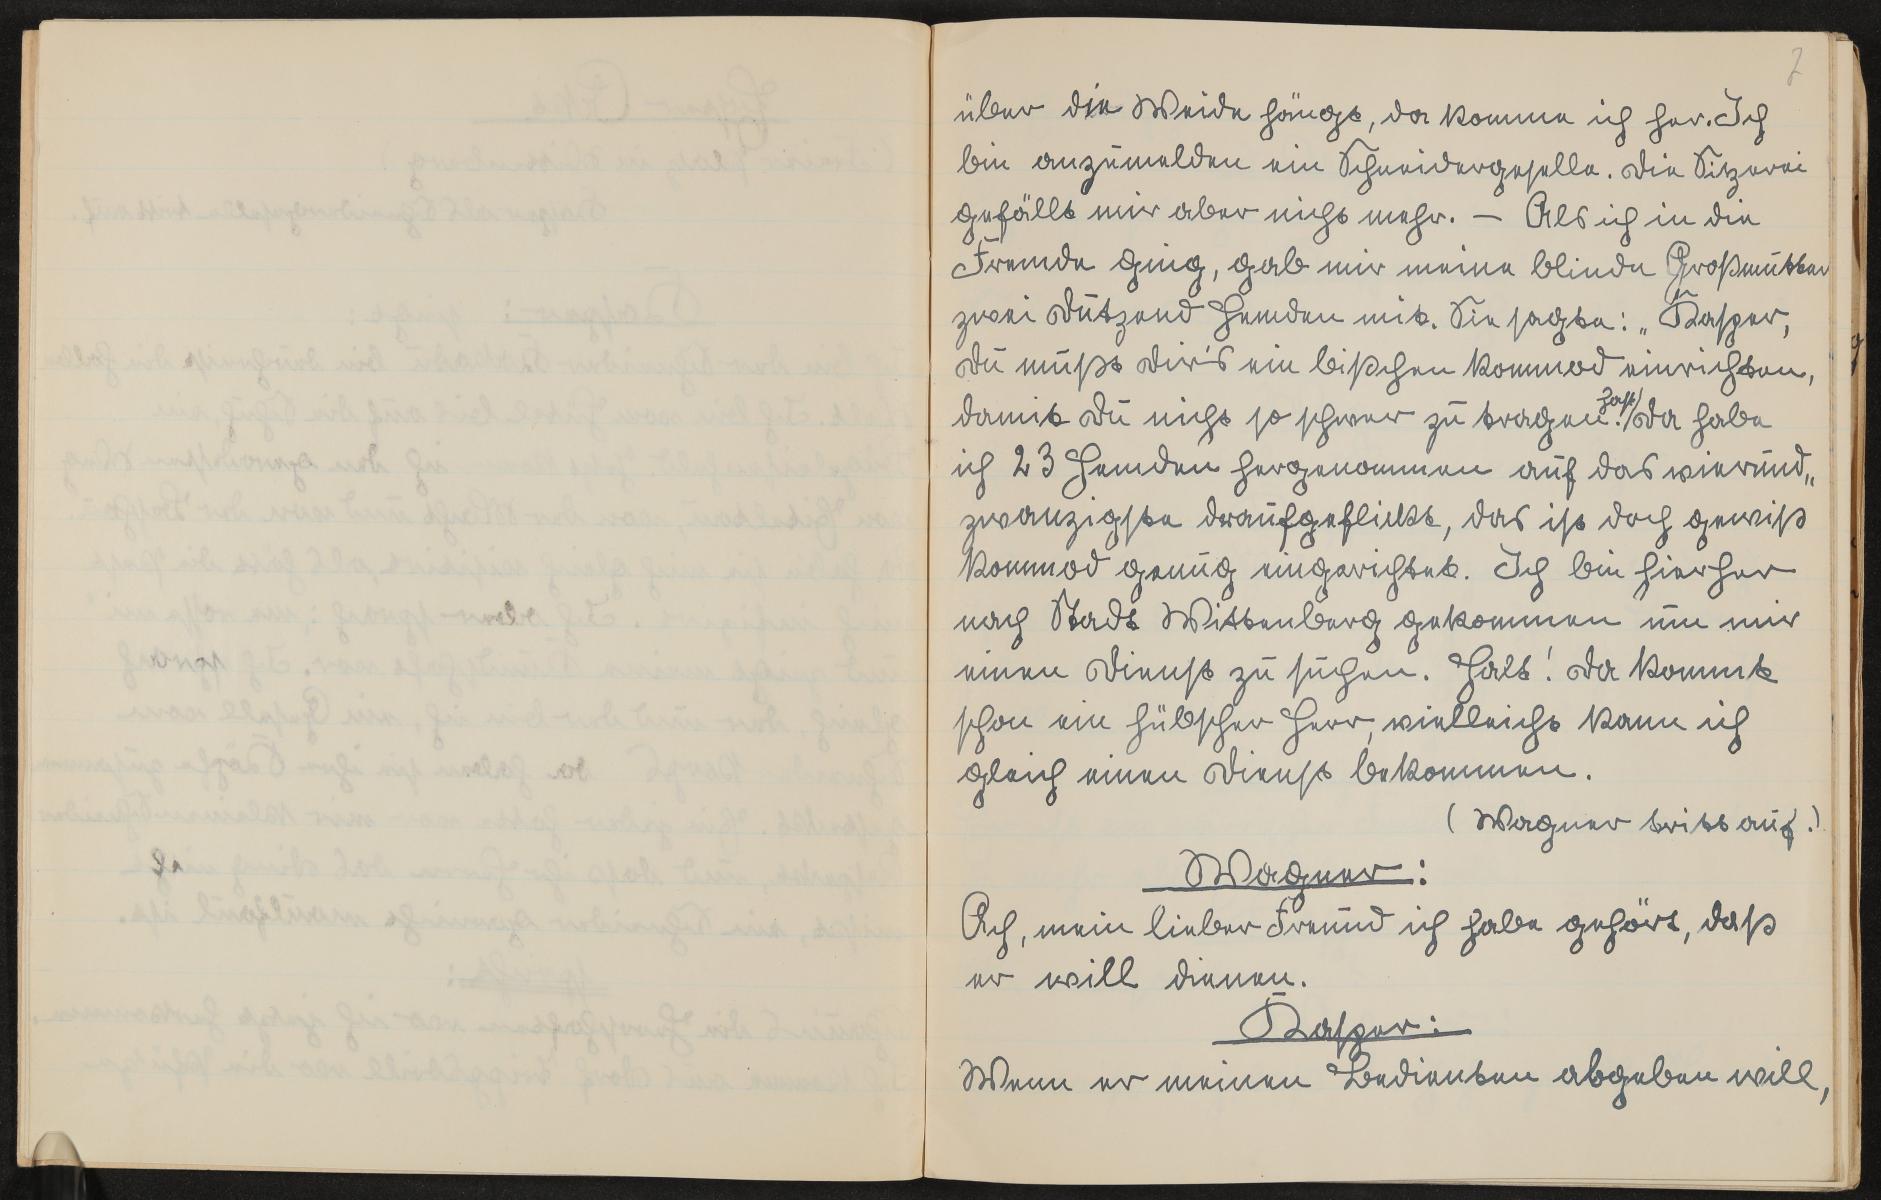 7
über die Weide hängt, da komme ich her. Ich
bin anzumelden ein Schneidergeselle. Die Sitzerei
gefällt mir aber nicht mehr. — Als ich in die
Fremde ging, gab mir meine blinde Großmutter
zwei Dutzend Hemden mit. Sie sagte: „Kasper,
Du mußt Dir's ein bißchen kommod einrichten,
damit Du nicht so schwer zu tragen hast! Da habe
ich 23 Hemden hergenommen auf das vierund„
zwanzigste draufgeflickt, das ist doch gewiß
kommod genug eingerichtet. Ich bin hierher
nach Stadt Wittenberg gekommen um mir
einen Dienst zu suchen. Halt! Da kommt
schon ein hübscher Herr, vielleicht kann ich
gleich einen Dienst bekommen.
(Wagner tritt auf.)
Wagner:
Ach, mein lieber Freund ich habe gehört, daß
er will dienen.
Kasper:
Wenn er meinen Bedienten abgeben will,